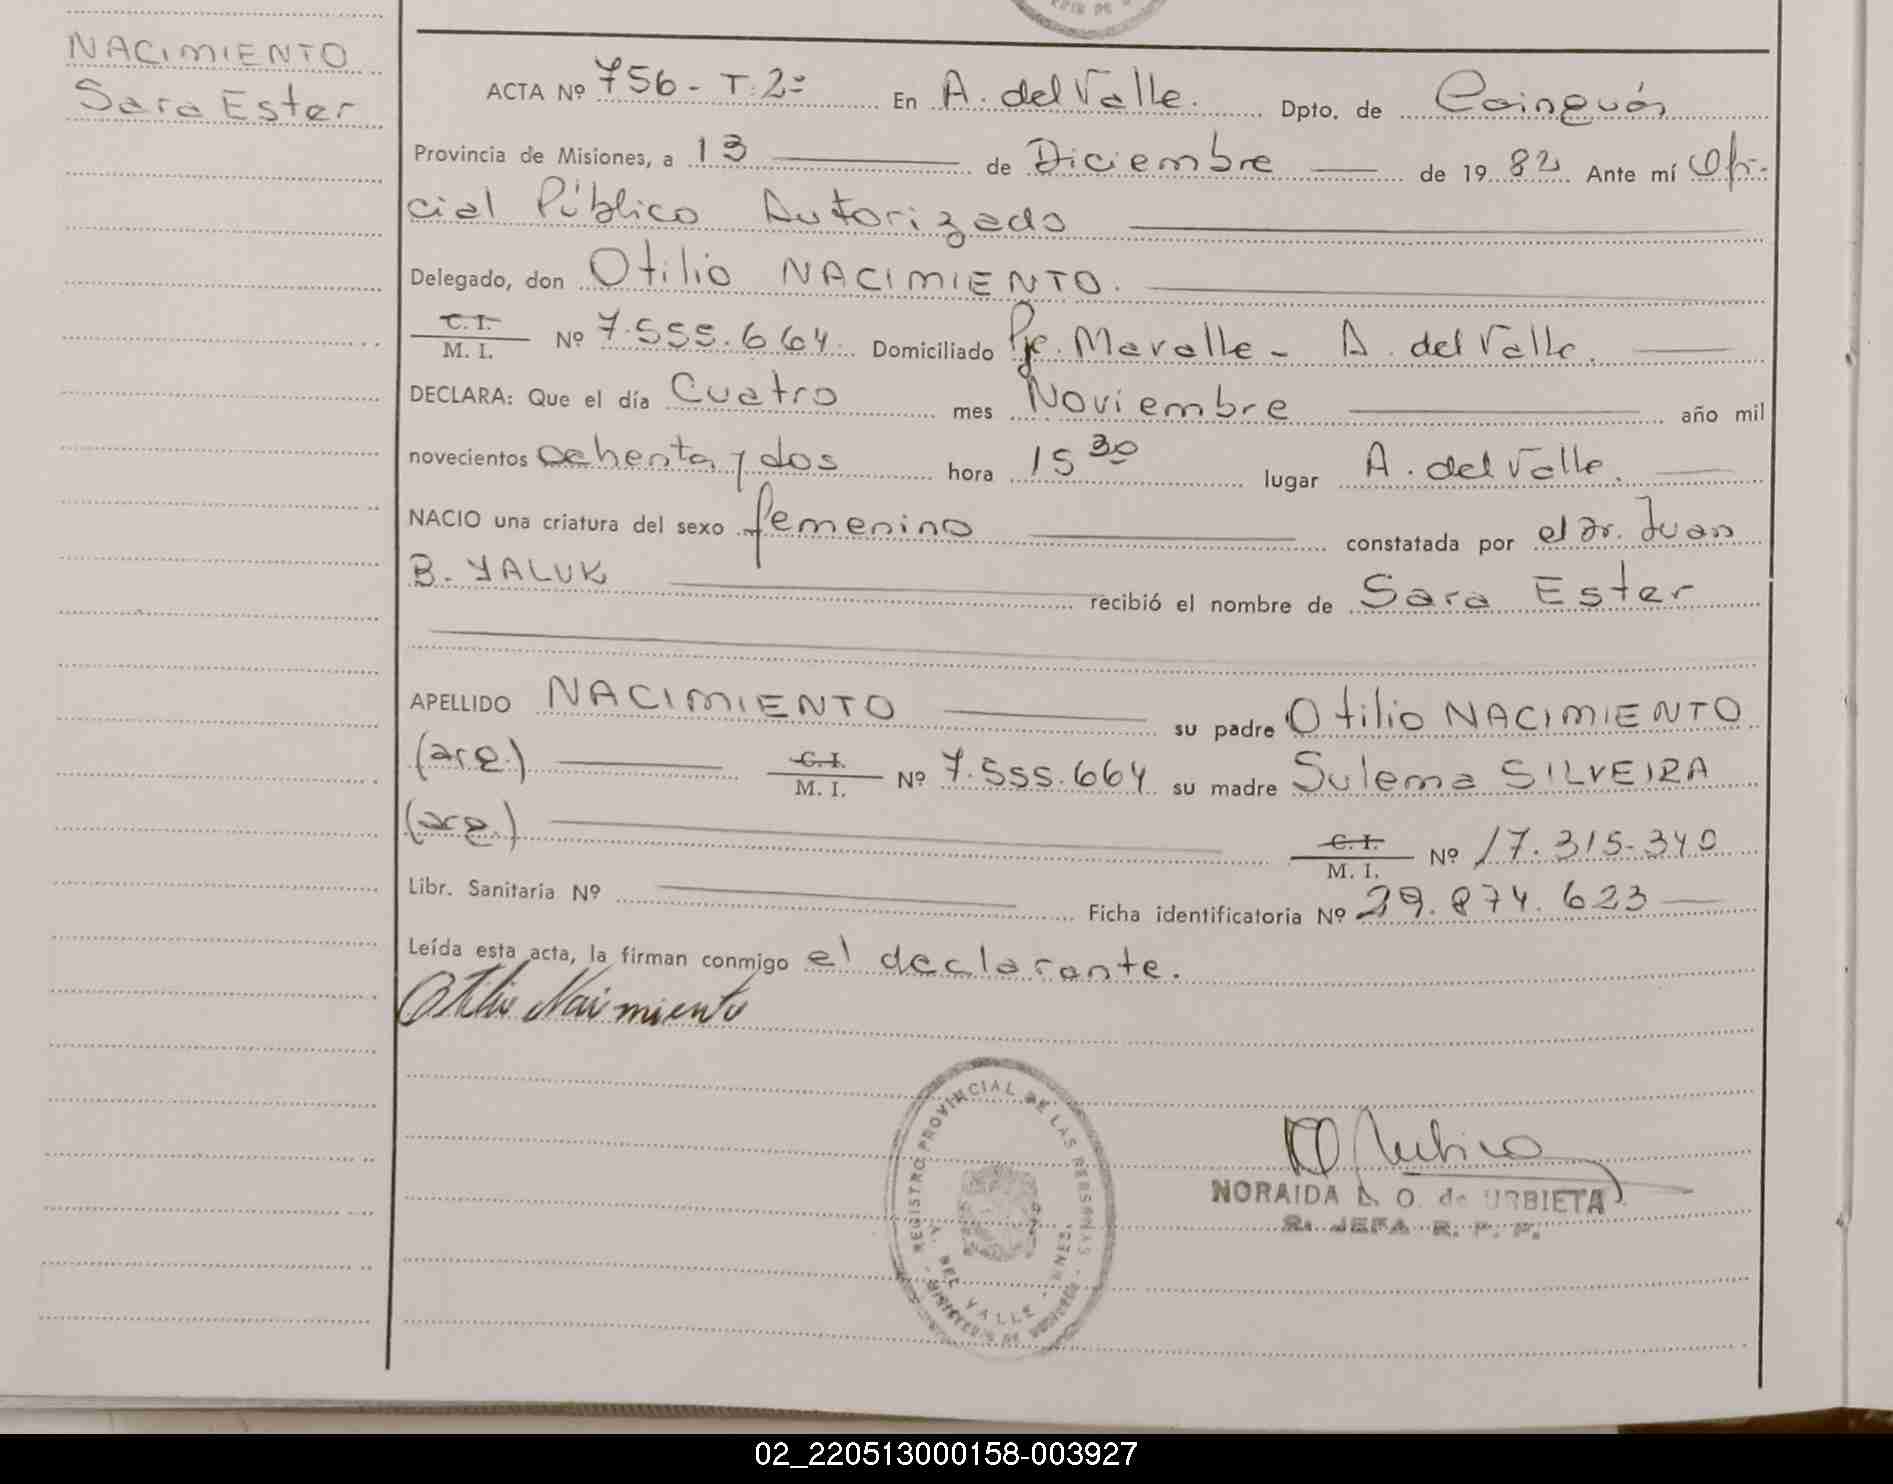 NACIMIENTO
Sara Ester
ACTA Nº 756 - T. 2º En A. del Valle. Dpto. de Cainguás
Provincia de Misiones, a 13 de Diciembre de 1982 Ante mí Ofi-
cial Público Autorizado
Delegado, don Otilio NACIMIENTO.
C. I.
M. I. Nº 7.555.664 Domiciliado Pje. Mavalle - A. del Valle.
DECLARA: Que el día Cuatro mes Noviembre año mil
novecientos ochenta y dos hora 15 30 lugar A. del Valle.
NACIO una criatura del sexo femenino constatada por el Dr. Juan
B. YALUK recibió el nombre de Sara Ester
APELLIDO NACIMIENTO su padre Otilio NACIMIENTO
(arg.) C. I.
M. I. Nº 7.555.664 su madre Sulema SILVEIRA
(arg.) C. I.
M. I. Nº 17.315.340
Libr. Sanitaria Nº Ficha identificatoria Nº 29.874.623
Leída esta acta, la firman conmigo el declarante.
Otilio Nacimiento
REGISTRO PROVINCIAL DE LAS PERSONAS
A. DEL VALLE - MNES.
MINISTERIO DE GOBIERNO
NORAIDA L. O. de URBIETA
JEFA R. P. P.
02_220513000158-003927